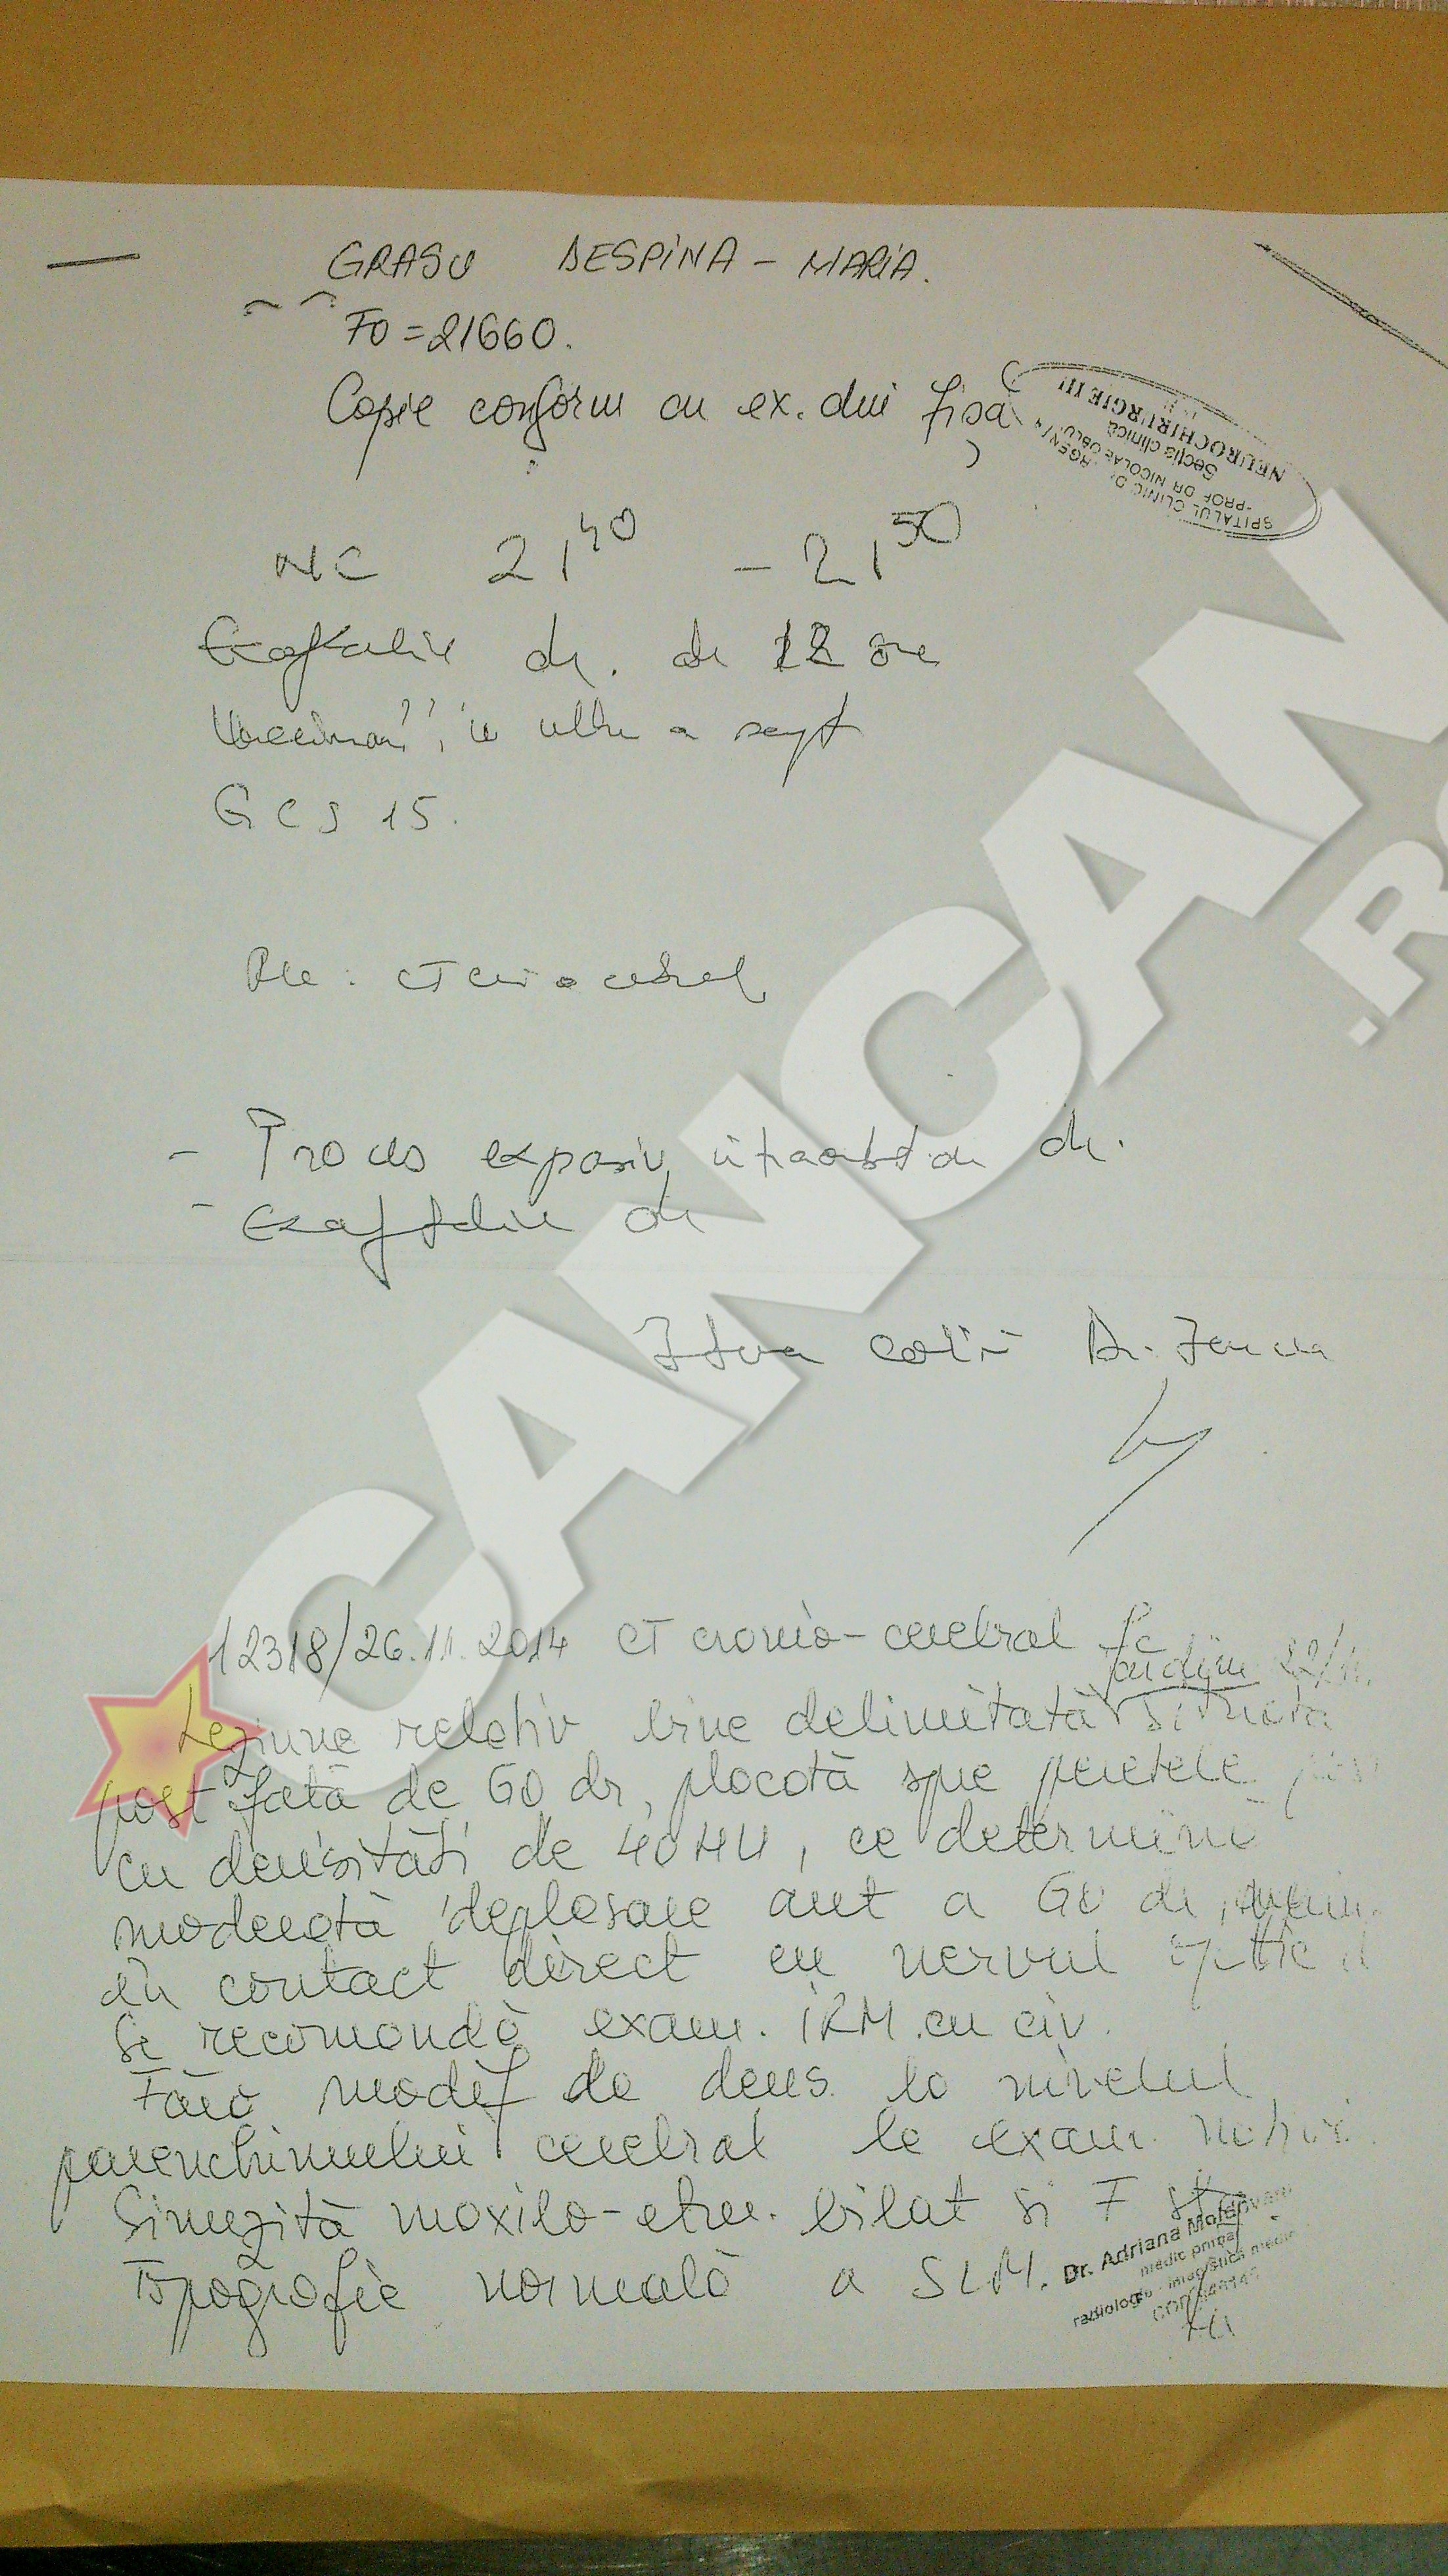 GRASU DESPINA - MARIA.
FO = 21660.
Copie conform cu ex. din fișă
SPITALUL CLINIC DE URGENȚĂ
"PROF DR NICOLAE OBLU"
Secția clinică
NEUROCHIRURGIE III
NC 21 40 - 21 50
Exoftalmie dr. de 12 ore
în ultima sept
GCS 15.
Rec: CT cranio cerebral
- Proces expansiv intraorbitar dr.
- Exoftalmie dr
Dr.
CANCAN.RO
12318/26.11.2014 CT cranio-cerebral fc
22/11.
Leziune relativ bine delimitată situată
post față de GO dr, placată spre peretele
cu densități de 40 HU, ce determină
moderată deplasare ant a GO dr,
în contact direct cu nervul optic d
Se recomandă exam. IRM cu civ.
Fără modif de dens. la nivelul
parenchimului cerebral la exam. nativ.
Sinuzită maxilo-etm. bilat și F stg
Topografie normală a SLM.
Dr. Adriana Moldovanu
medic primar
radiologie - imagistică medic
COD